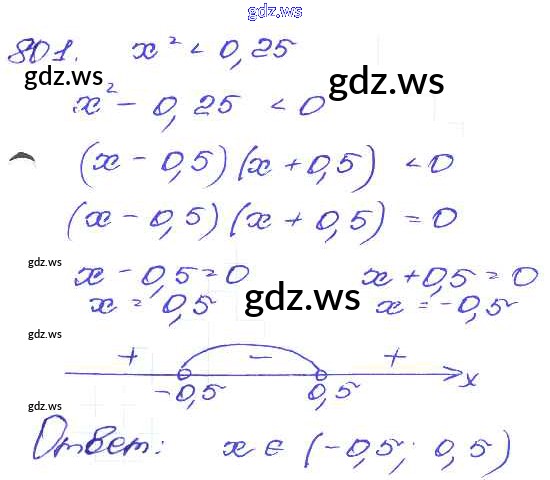 gdz.ws
801. x² < 0,25
gdz.ws
gdz.ws
x² - 0,25 < 0
(x - 0,5) (x + 0,5) < 0
(x - 0,5) (x + 0,5) = 0
gdz.ws
x - 0,5 = 0 x + 0,5 = 0
x = 0,5 gdz.ws x = -0,5
gdz.ws
+ - +
-0,5 0,5 x
gdz.ws
Ответ: x ∈ (-0,5; 0,5)